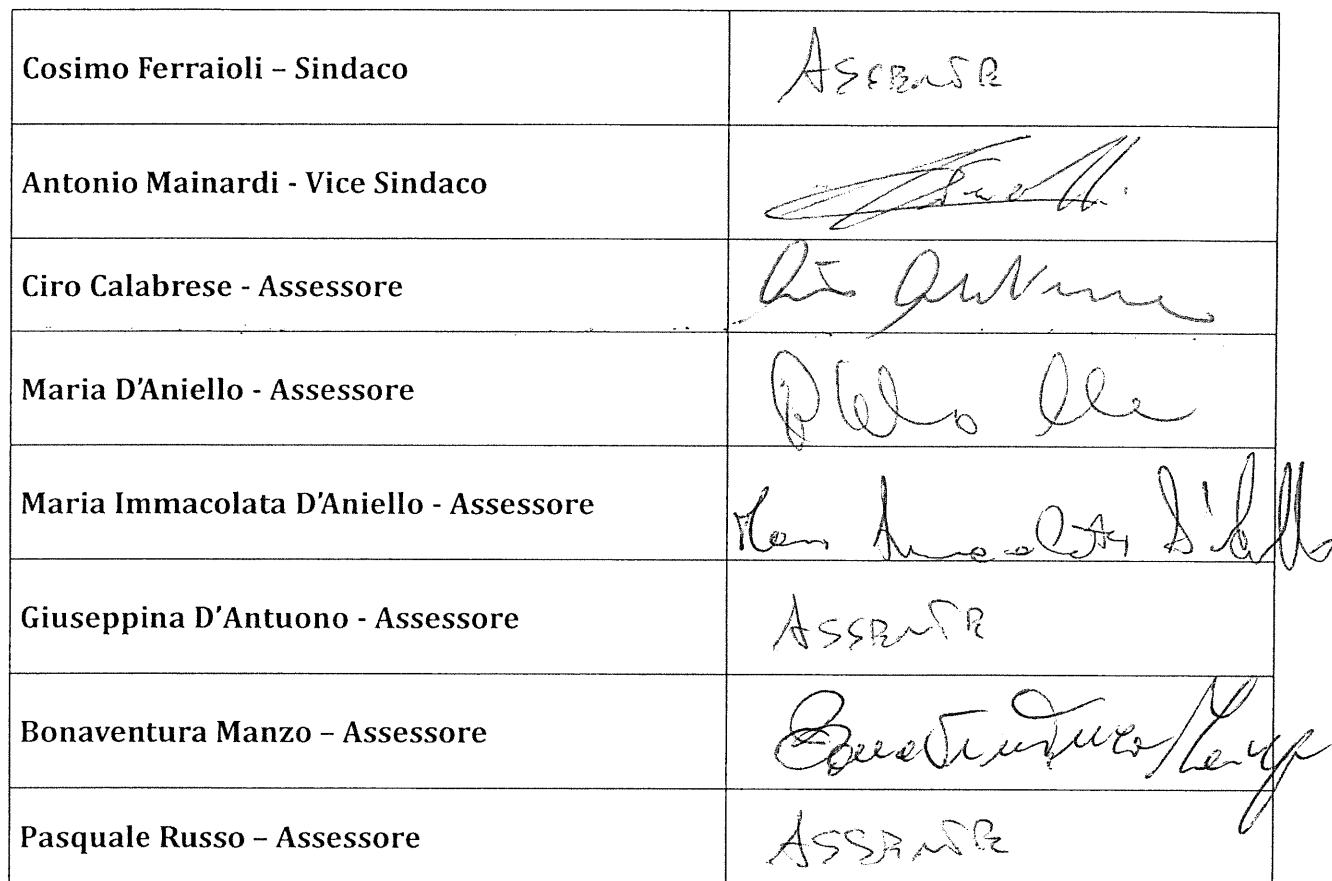 Cosimo Ferraioli – Sindaco ASSENTE
Antonio Mainardi - Vice Sindaco
Ciro Calabrese - Assessore
Maria D'Aniello - Assessore
Maria Immacolata D'Aniello - Assessore Maria Immacolata D'Aniello
Giuseppina D'Antuono - Assessore ASSENTE
Bonaventura Manzo – Assessore Bonaventura Manzo
Pasquale Russo – Assessore ASSENTE